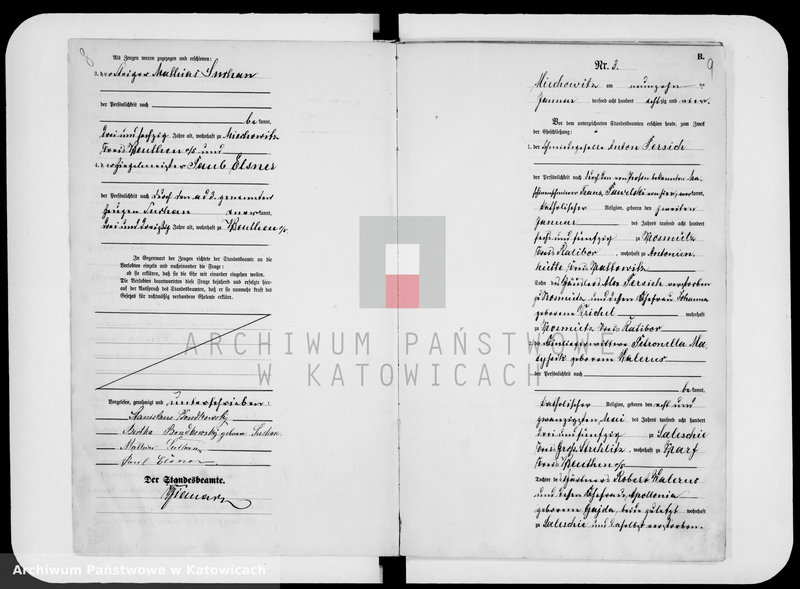 8
Als Zeugen waren zugezogen und erschienen:
3. der Steiger Mathias Suchan
der Persönlichkeit nach
be kannt,
drei und sechzig Jahre alt, wohnhaft zu Miechowitz
Kreis Beuthen o/s und
4. der Ziegelmeister Paul Elsner
der Persönlichkeit nach durch den ad 3. genannten
Zeugen Suchan anerkannt,
drei und dreißig Jahre alt, wohnhaft zu Beuthen o/s.
In Gegenwart der Zeugen richtete der Standesbeamte an die
Verlobten einzeln und nacheinander die Frage:
ob sie erklären, daß sie die Ehe mit einander eingehen wollen.
Die Verlobten beantworteten diese Frage bejahend und erfolgte hier-
auf der Ausspruch des Standesbeamten, daß er sie nunmehr kraft des
Gesetzes für rechtmäßig verbundene Eheleute erkläre.
Vorgelesen, genehmigt und unterschrieben:
Stanislaus Bondkowsky
Bertha Bondkowsky geborene Suchan
Mathias Suchan
Paul Elsner
Der Standesbeamte.
B.
9
Nr. 3.
Miechowitz am neunzehn ten
Januar tausend acht hundert achtzig und vier.
Vor dem unterzeichneten Standesbeamten erschienen heute, zum Zweck
der Eheschließung:
1. der Schmiedegeselle Anton Persich
der Persönlichkeit nach durch den von Person bekannten Ma-
schinenheizer Franz Pawelski von hier, anerkannt,
katholischer Religion, geboren den zweiten
Januar des Jahres tausend acht hundert
sechs und fünfzig zu Kosmütz
Kreis Ratibor, wohnhaft zu Antonien-
hütte Kreis Kattowitz
Sohn des Häuslers Persich verstorben
zu Kosmütz und dessen Ehefrau Johanna
geborene wohnhaft
zu Kosmütz Kreis Ratibor
2. die Petronella Ma-
tyssek geborene Walerus
der Persönlichkeit nach
be kannt,
katholischer Religion, geboren den acht und
zwanzigsten Mai des Jahres tausend acht hundert
drei und fünfzig zu Saleschie
Kreis Groß Strehlitz, wohnhaft zu Karf
Kreis Beuthen o/s
Tochter des Gärtners Robert Walerus
und dessen Ehefrau Apollonia
geborene Gajda, beide zuletzt wohnhaft
zu Saleschie und daselbst verstorben.
ARCHIWUM PAŃSTWOWE
W KATOWICACH
Archiwum Państwowe w Katowicach